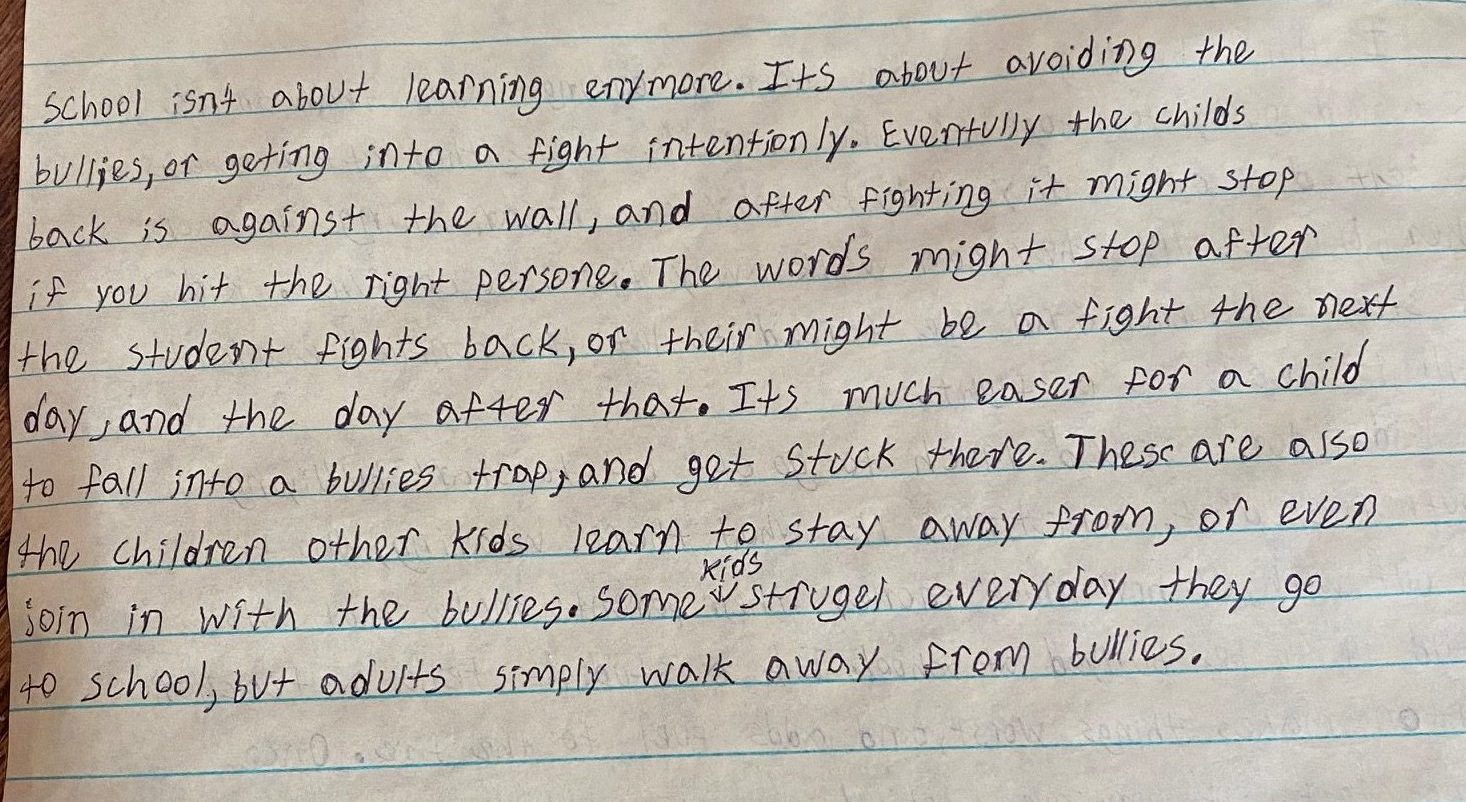 School isnt about learning enymore. Its about avoiding the
bullies, or geting into a fight intentionly. Eventully the childs
back is against the wall, and after fighting it might stop
if you hit the right persone. The words might stop after
the student fights back, or their might be a fight the next
day, and the day after that. Its much easer for a child
to fall into a bullies trap, and get stuck there. These are also
the children other kids learn to stay away from, or even
join in with the bullies. Some kids strugel everyday they go
to school, but adults simply walk away from bullies.